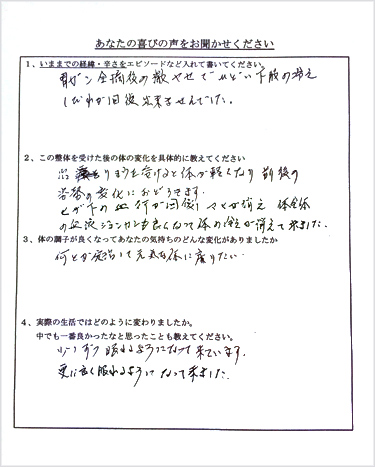 あなたの喜びの声をお聞かせください
1、いままでの経緯・辛さをエピソードなど入れて書いてください
胃ガン全摘後の激ヤセでひどい下肢の冷え
しびれが回復出来ませんでした。
2、この整体を受けた後の体の変化を具体的に教えてください
を受けると体が軽くなり 前後の
変化におどろきです。
ヒザ下の血行が回復し が消え 体全体
の血液 も良くなって体の が消えて来ました。
3、体の調子が良くなってあなたの気持ちのどんな変化がありましたか
何とか して元気な体に戻りたい
4、実際の生活ではどのように変わりましたか。
中でも一番良かったなと思ったことも教えてください。
少しずつ眠れるようになって来ています。
更に良く眠れるようになって来ました。